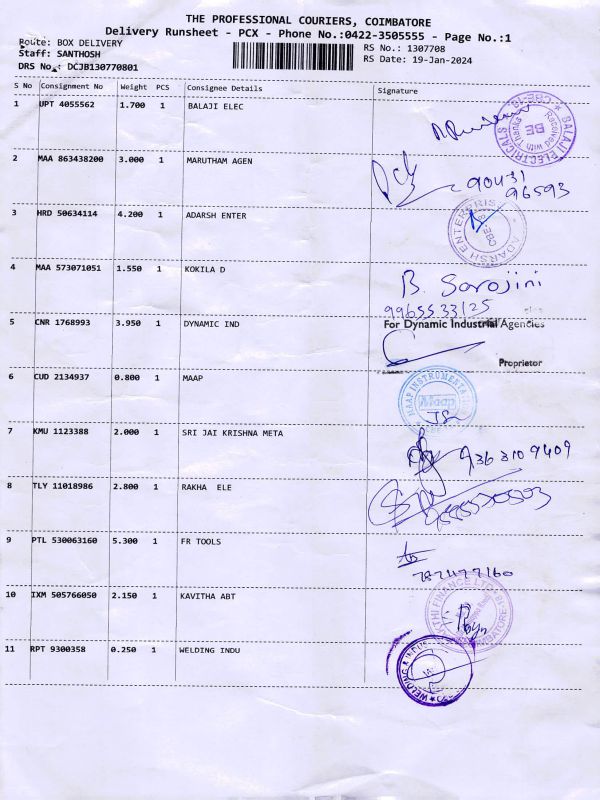 THE PROFESSIONAL COURIERS, COIMBATORE
Delivery Runsheet - PCX - Phone No.:0422-3505555 - Page No.:1
Route: BOX DELIVERY
Staff: SANTHOSH
DRS No.: DCJB130770801
RS No.: 1307708
RS Date: 19-Jan-2024
S No Consignment No Weight PCS Consignee Details Signature
1 UPT 4055562 1.700 1 BALAJI ELEC
BALAJI ELECTRICALS CBE
Received with Thanks
BE
2 MAA 863438200 3.000 1 MARUTHAM AGEN
90431
96593
3 HRD 50634114 4.200 1 ADARSH ENTER
ADARSH ENTERPRISE
CBE
4 MAA 573071051 1.550 1 KOKILA D
B. Sarojini
9965533125
5 CNR 1768993 3.950 1 DYNAMIC IND
For Dynamic Industrial Agencies
Proprietor
6 CUD 2134937 0.800 1 MAAP
MAAP INSTRUMENTS
Maap
7 KMU 1123388 2.000 1 SRI JAI KRISHNA META
9363109409
8 TLY 11018986 2.800 1 RAKHA ELE
9 PTL 530063160 5.300 1 FR TOOLS
10 IXM 505766050 2.150 1 KAVITHA ABT
THI FINANCE LTD
COIMBATORE
11 RPT 9300358 0.250 1 WELDING INDU
WELDING & INDU